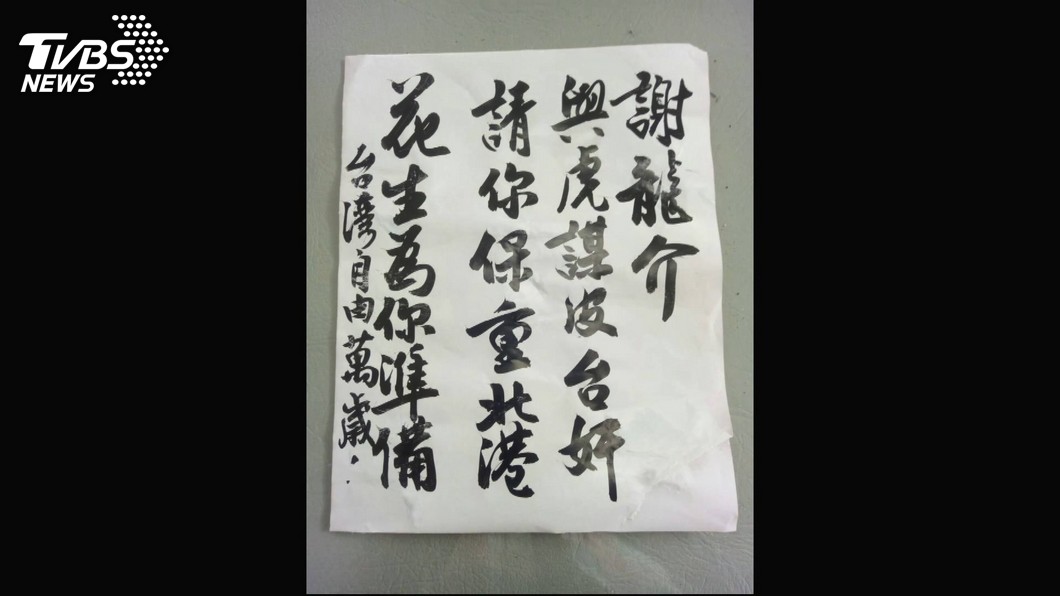 TVBS
NEWS
謝龍介
與虎謀皮台奸
請你保重北港
花生為你準備
台灣自由萬歲.